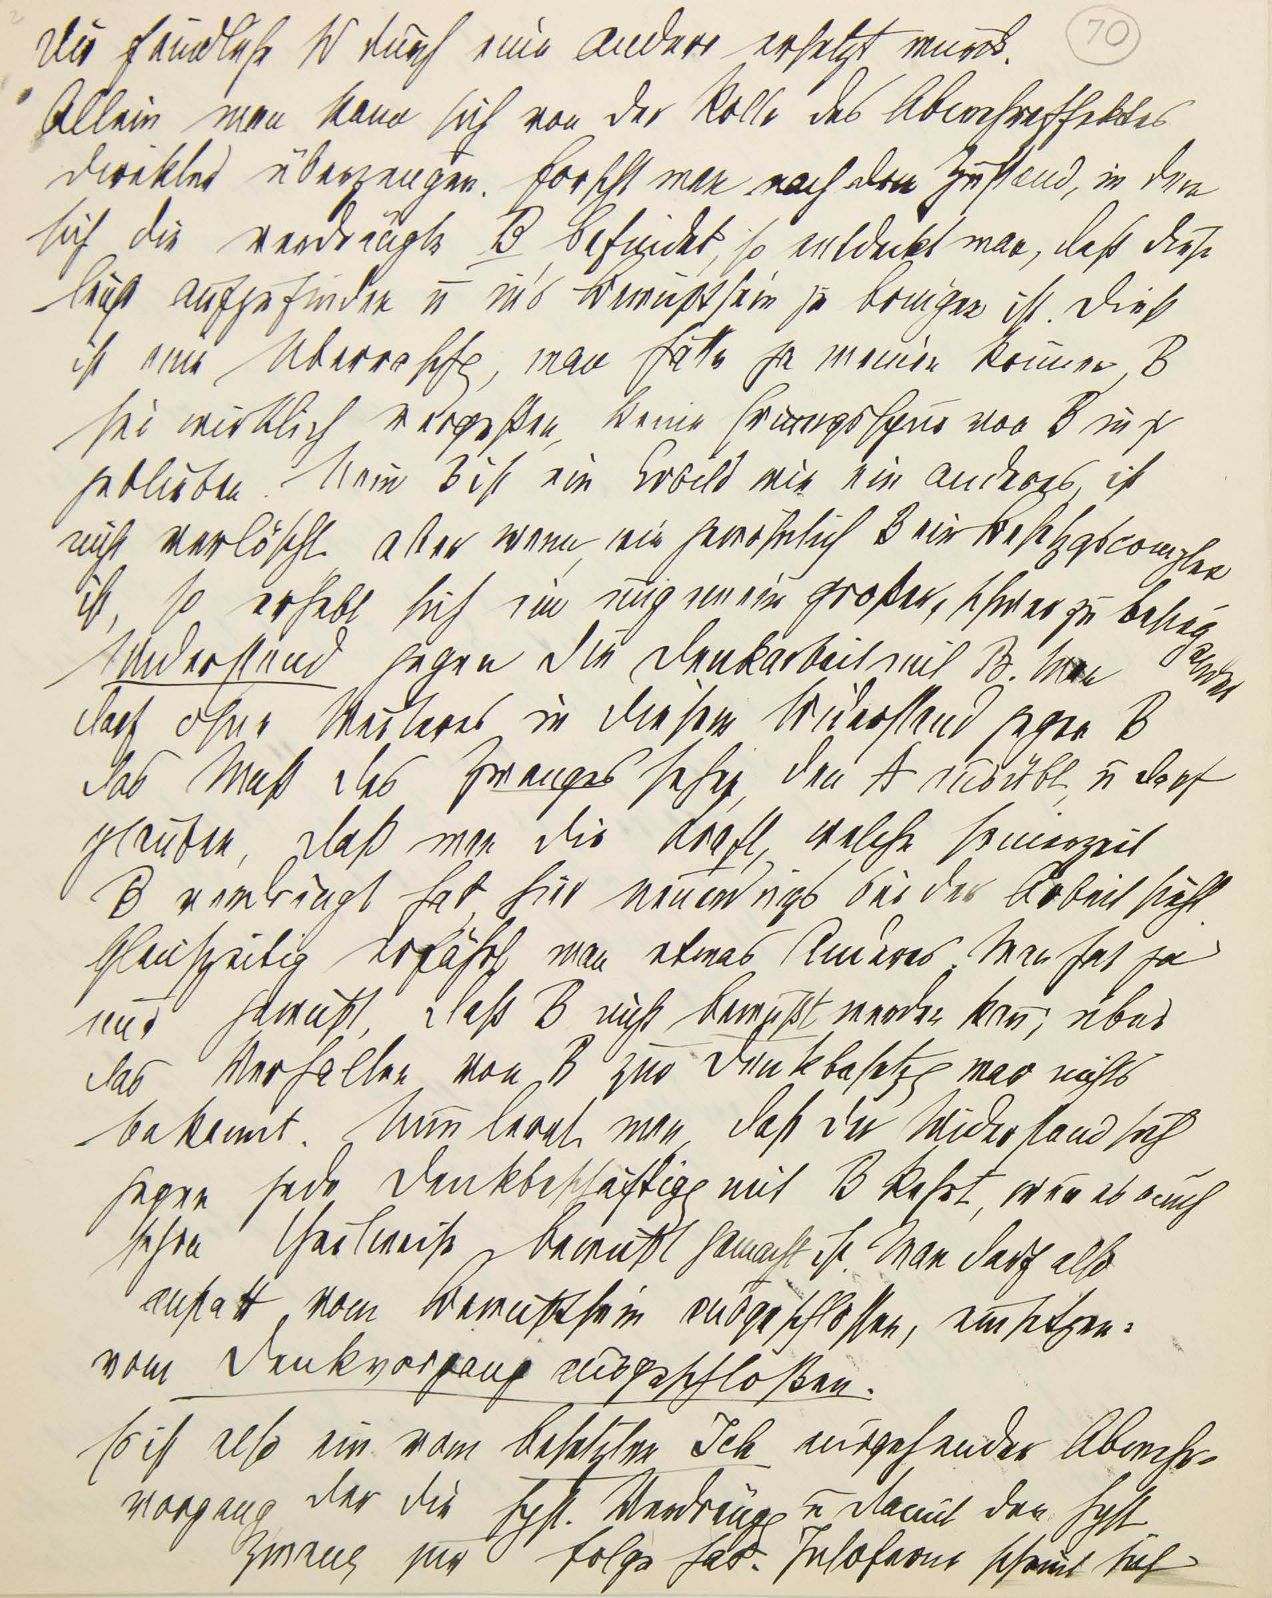 70
die feindliche W durch eine andere ersetzt wurde.
Allein man kann sich von der Rolle des Abwehreffektes
direkter überzeugen. Forscht man nach dem Zustand, in dem
sich die verdrängte B befindet, so entdeckt man, daß diese
leicht aufzufinden u ins Bewußtsein zu bringen ist. Dieß
ist eine Überraschg, man hätte ja meinen können, B
sei wirklich vergeßen, keine Erinrungsspur von B in ψ
geblieben. Nein B ist ein Erbild wie ein anderes, ist
nicht verlöscht, aber wenn, wie gewöhnlich B ein Besetzgscomplex
ist, so erhebt sich ein ungemein großer, schwer zu beseitigender
Widerstand gegen die Denkarbeit mit B. Man
darf ohne Weiteres in diesem Widerstand gegen B
das Maß des Zwanges sehen, den A ausübt, u darf
glauben, daß man die Kraft, welche seinerzeit
B verdrängt hat, hier neuerdings bei der Arbeit sieht.
Gleichzeitig erfährt man etwas Anderes. Man hat ja
nur gewußt, daß B nicht bewußt werden kann, über
das Verhalten von B zur Denkbesetzg war nichts
bekannt. Nun lernt man, daß der Widerstand sich
gegen jede Denkbeschäftigg mit B kehrt, wenn es auch
schon theilweise bewußt gemacht ist. Man darf also
anstatt vom Bewußtsein ausgeschlossen, einsetzen:
vom Denkvorgang ausgeschloßen.
Es ist also ein vom besetzten Ich ausgehender Abwehr-
vorgang der die hyst. Verdrängg u damit den hyst
Zwang zur Folge hat. Insoferne scheint sich